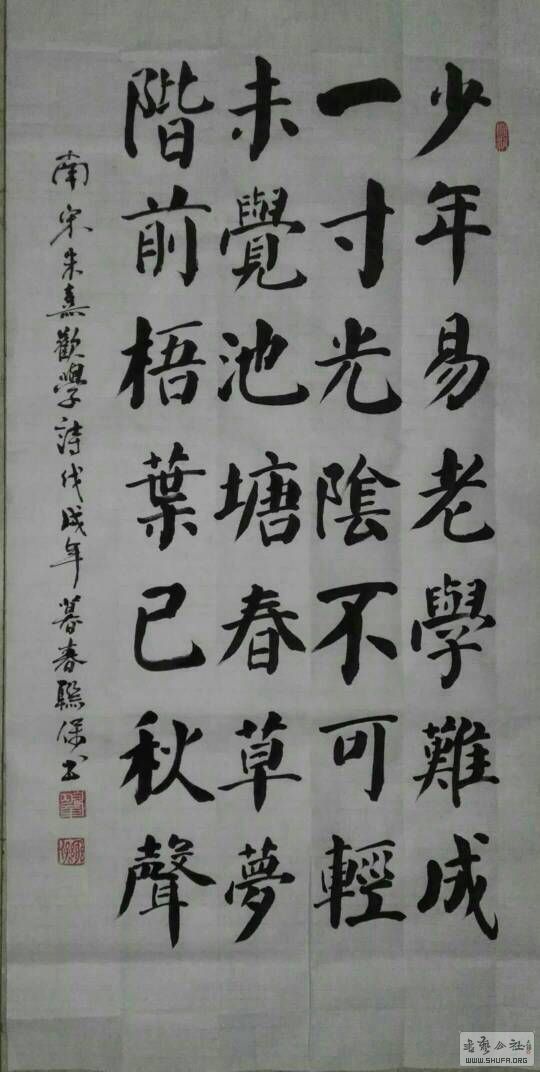 少年易老學難成
一寸光陰不可輕
未覺池塘春草夢
階前梧葉已秋聲
南宋朱熹歡學詩戊戌年暮春聯保书
书艺公社
WWW.SHUFA.ORG